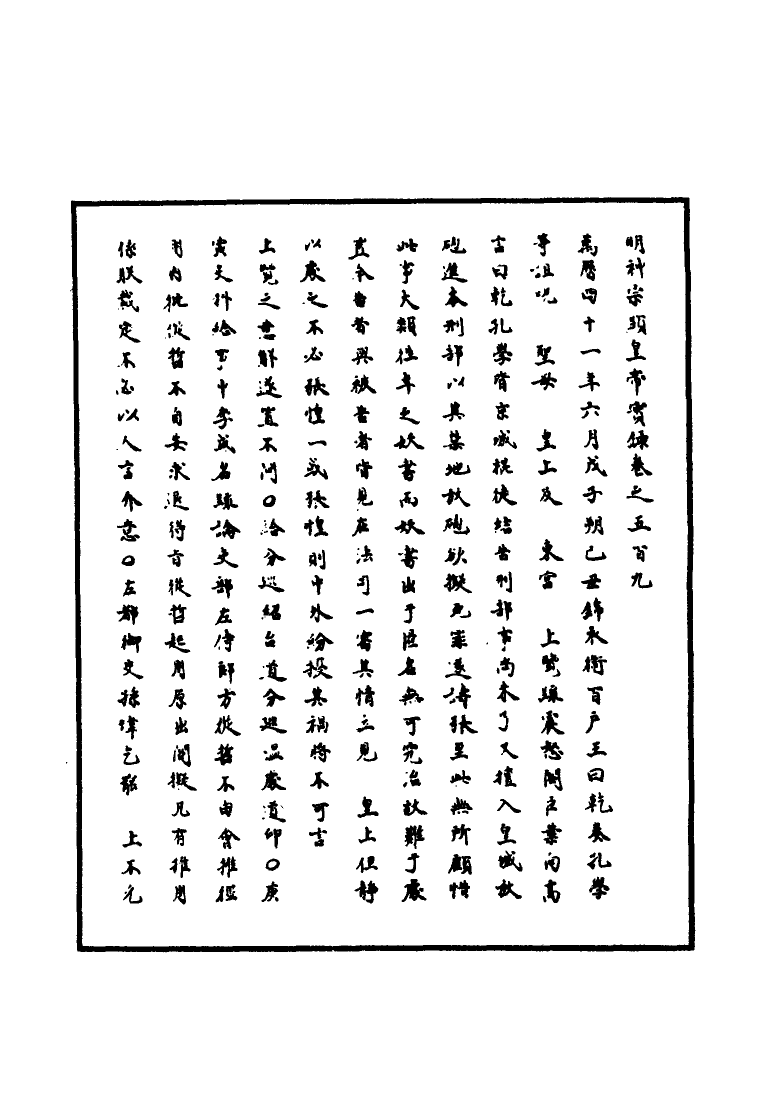 明神宗顯皇帝實錄卷之五百九
萬曆四十一年六月戊子朔己丑錦衣衛百戶王曰乾奏孔學
等詛呪　聖母　皇上及　東宮　上覽疏震怒閣臣葉向高
言曰乾孔學皆京城棍徒結告刑部事尚未了又擅入皇城放
砲進本刑部以其禁地放砲欲擬死罪遂譸張至此無所顧惜
此事大類往年之妖書而妖書出于匿名無可究治故難于處
置今告者與被告者皆見在法司一審其情立見　皇上但靜
以處之不必張惶一或張惶則中外紛擾其禍將不可言
上覽之意解遂置不問○給分巡紹台道分巡溫處道印○庚
寅天科給事中李成名疏論吏部左侍郎方從哲不由會推徑
用內批從哲不自安求退得旨從哲起用原出閣擬凡有推用
係朕裁定不必以人言介意○左都御史孫瑋乞罷　上不允